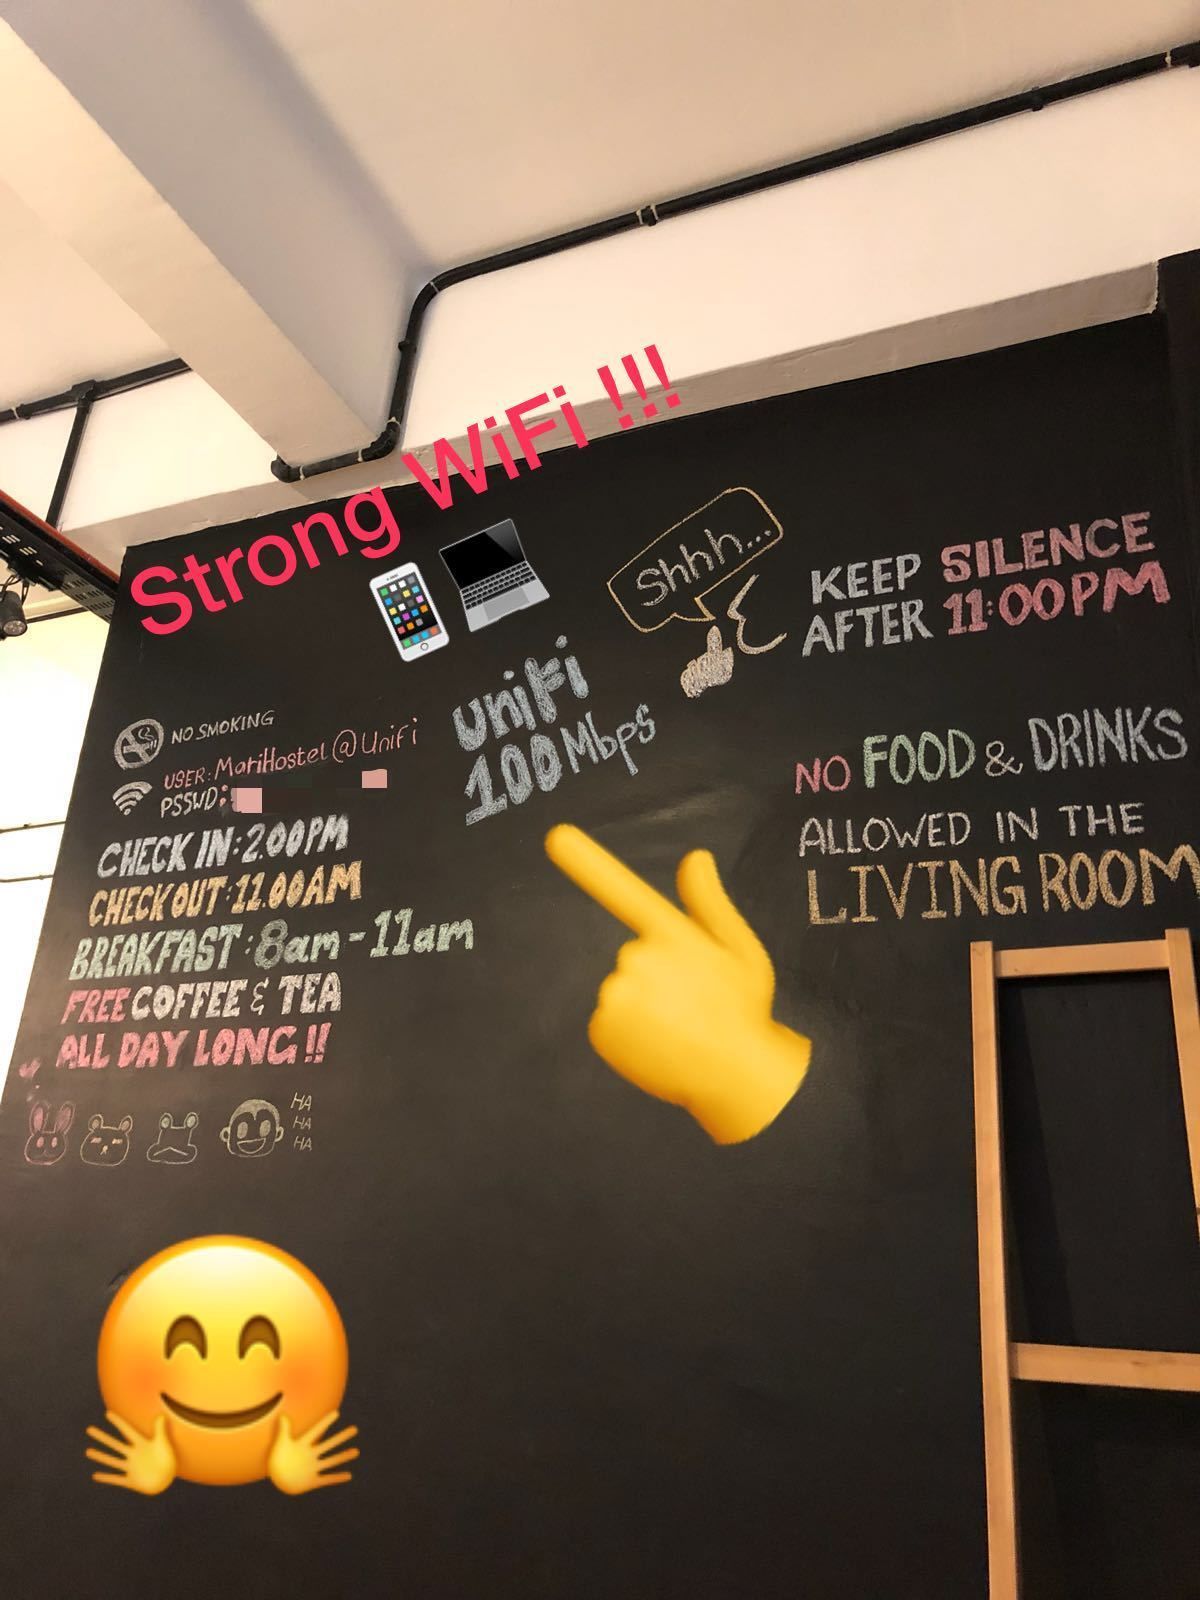 Strong WiFi !!!
Shhh...
KEEP SILENCE
AFTER 11:00PM
unifi
100Mbps
NO SMOKING
USER: MariHostel@UniFi
PSSWD:
CHECK IN: 2.00PM
CHECK OUT: 11.00AM
BREAKFAST: 8am - 11am
FREE COFFEE & TEA
ALL DAY LONG!!
HA
HA
HA
NO FOOD & DRINKS
ALLOWED IN THE
LIVING ROOM